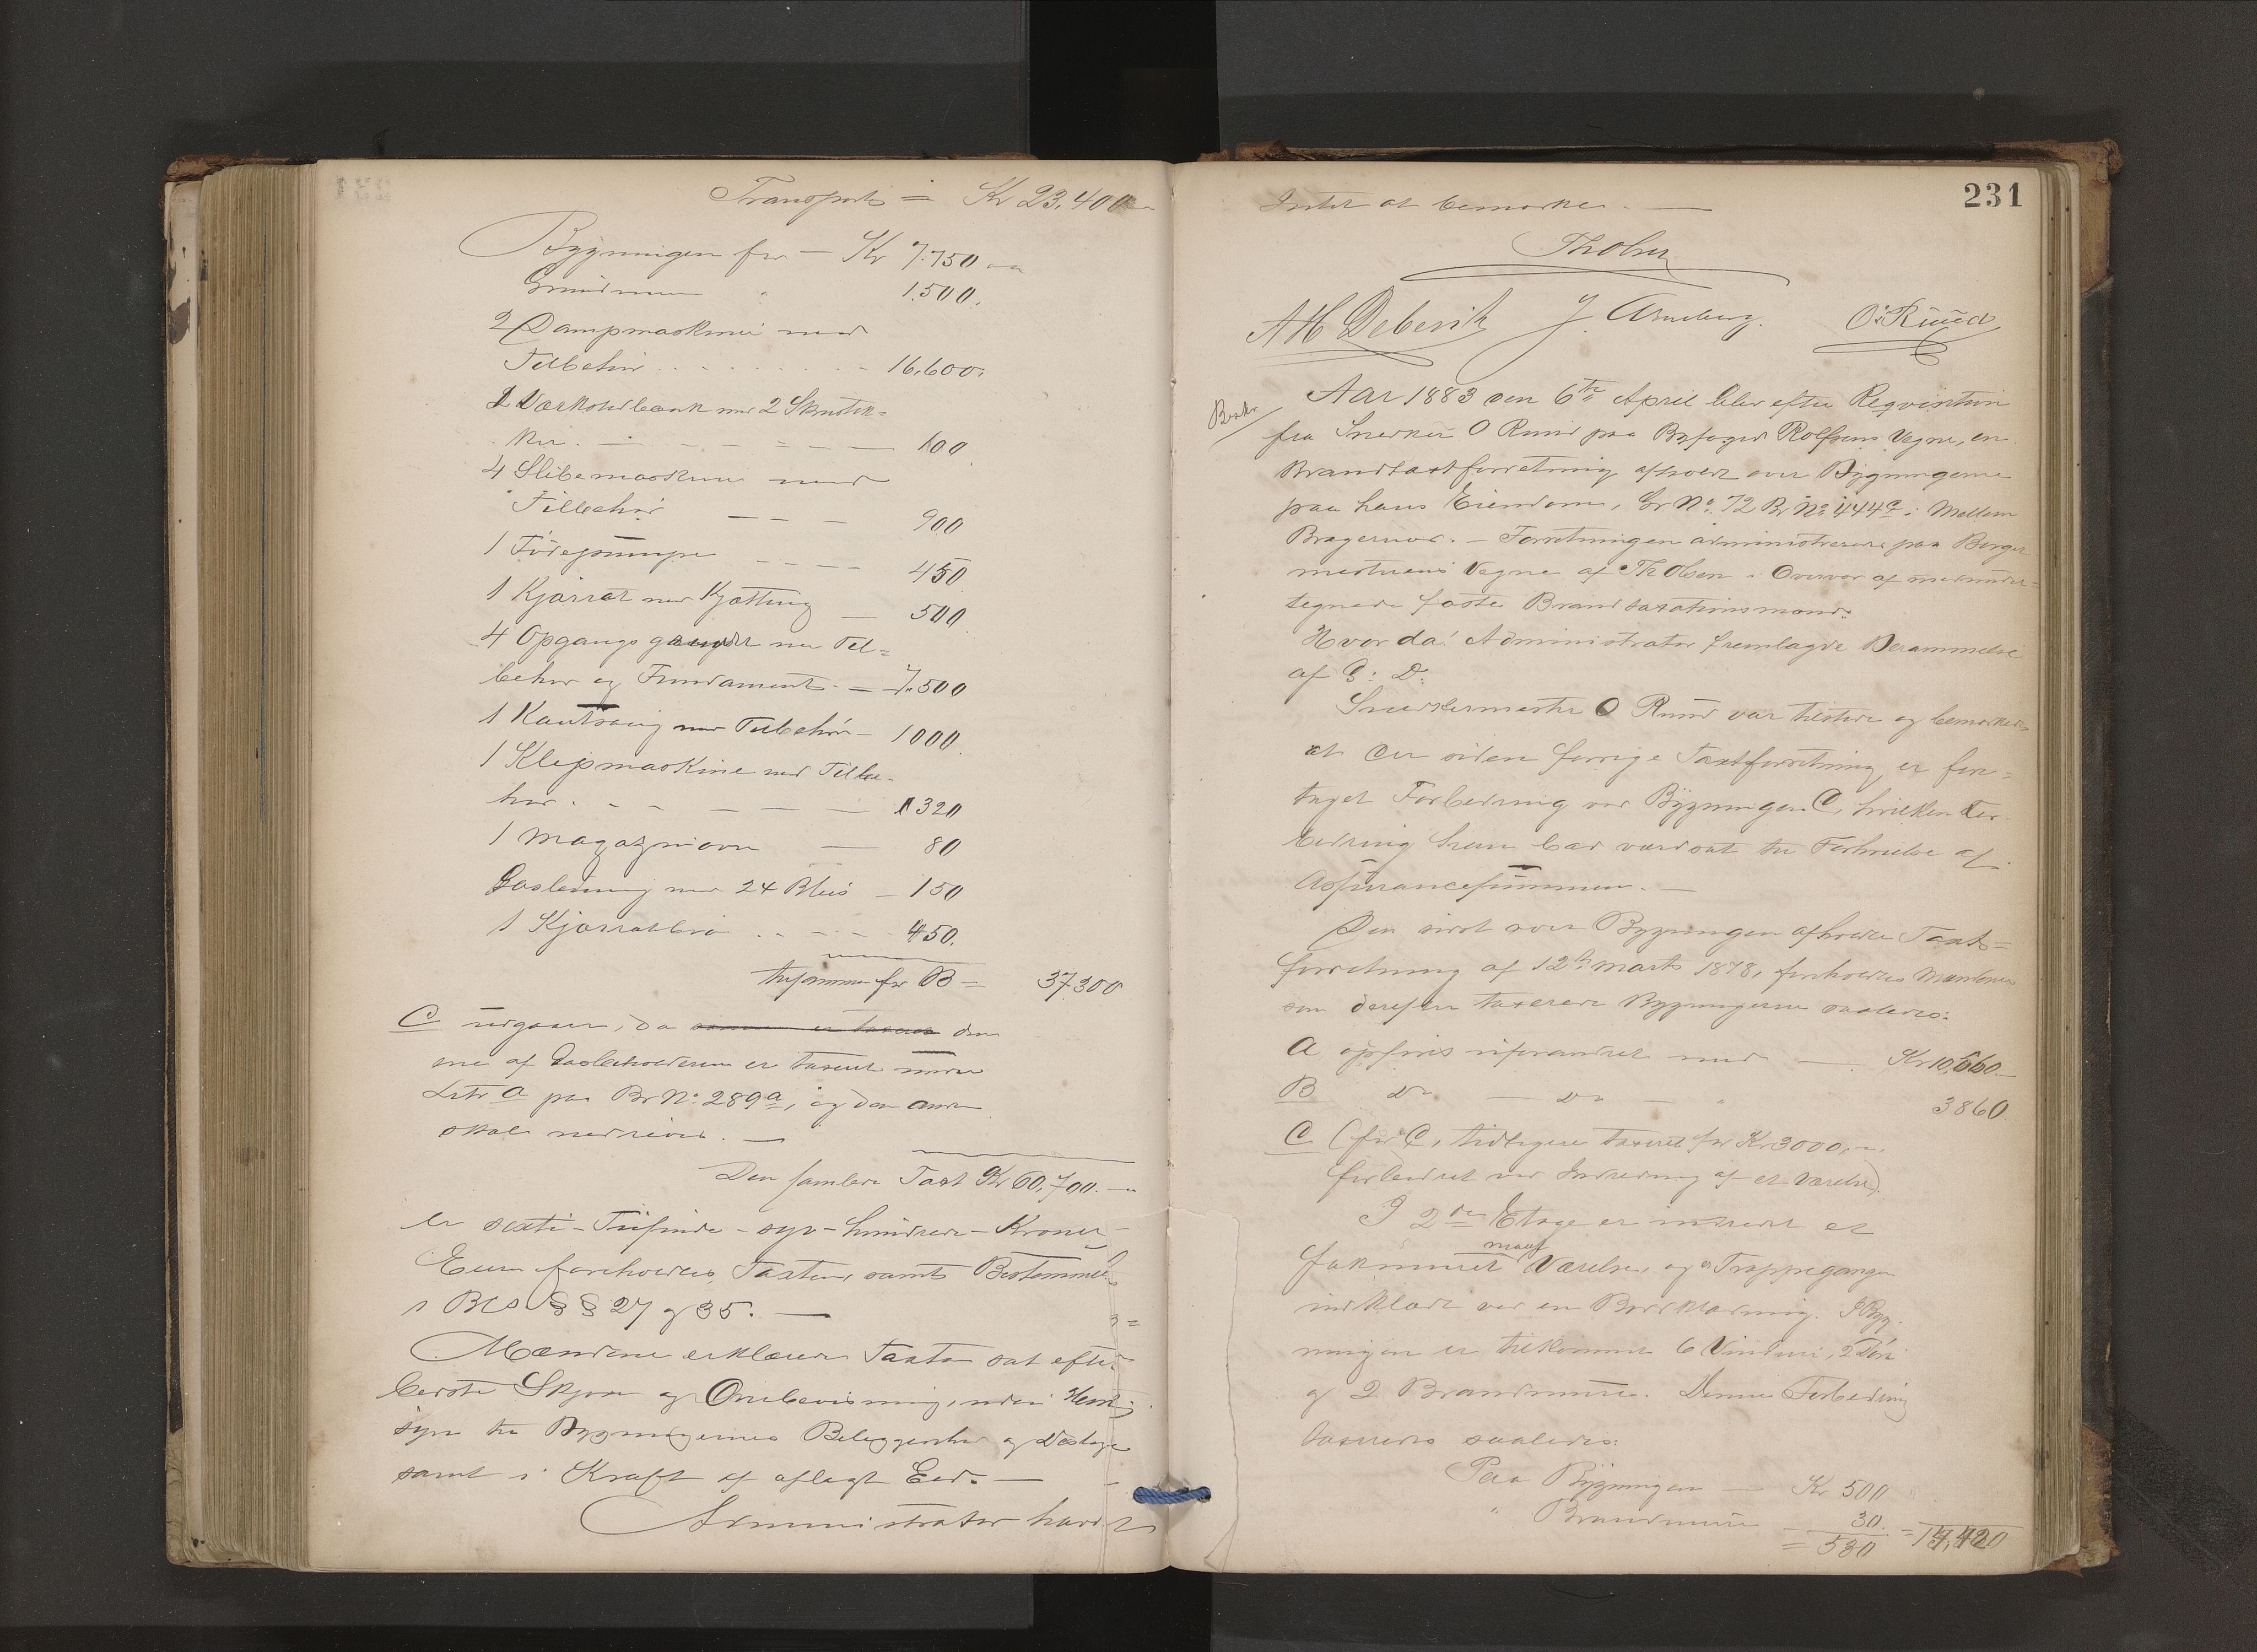 Transport = Kr 23,400
Bygningen for — Kr 7.750
Grundmuren " 1.500.
2 Dampmaskiner med
Tilbehør . . . . . . . . 16,600.
1 Værkstedbænk med 2 Skrustik=
ker . — — — — — — 100
4 Slibemaskiner med
Tilbehør — — — 900
1 Fødepumpe — — — — 450
1 Kjørrat med Kjætting — 500
4 Opgangs med Til=
behør og Fundament — 7.500
1 Kantsaug med Tilbehør — 1000
1 Klipmaskine med Tilbe-
hør . — — — — — — 320
1 Magazinovn — 80
Gasledning med 24 Blus — 150
1 Kjørratbro . . — — 450.
tilsammen for B = 37,300
C udgaar, da den
ene af Gasbeholderen er taxeret under
Litr A paa Br No 289a, og den anden
skal nedrives. —
Den samlede Taxt Kr 60,700. —
er sexti - Tusinde - syv - hundrede - Kroner
Eieren foreholdtes Taxten, samt Bestemmelsen
i BLs §§ 27 og 35. —
Mændene erklærede Taxten sat efter
bedste Skjøn og Overbevisning, uden Hen-
syn til Bygningernes Beliggenhed og
samt i Kraft af aflagt Eed. —
Administrator havde
231
Intet at bemærke. —
Th Olsen
AH Debesik J. Arneberg. O. Ruud
Aar 1883 den 6te April blev efter Reqvisition
fra Snedker O Ruud paa Byfoged Rolfsens Vegne, en
Brandtaxtforretning afholdt over Bygningerne
paa hans Eiendom, Gr No. 72 Br No. 444a i Mellem
Bragernæs. — Forretningen administreredes paa Borger
mesterens Vegne af Th Olsen i Overvær af medunder-
tegnede faste Brandtaxationsmænd.
Hvor da! Administrator fremlagde Berammelse
af G: D:
Snedkermester O Ruud var tilstede og bemærkede
at der siden forrige Taxtforretning er fore=
taget Forbedring ved Bygningen C, hvilken For-
bedring han bad vurderet til Forhøielse af
Assurancesummen. —
Den sidst over Bygningen afholdte Taxt=
forretning af 12te Marts 1878, foreholdtes Mændene
som derefter taxerede Bygningerne saaledes:
A opføres uforandret med — Kr 10,660. —
B Do — Do — " 3860
C (før C, tidligere taxeret for Kr 3000,
forbedret ved Indredning af et Værelse).
I 2den Etage er indredet et
Værelse, og Trappegangen
indklædt ved en Bordklædning. I Byg-
ningen er tilkommet 6 Vinduer, 2 Døre
og 2 Brandmure. Denne Forbedring
taxeredes saaledes:
Paa Bygningen — Kr 500
" Brandmure — 30.
= 530 =